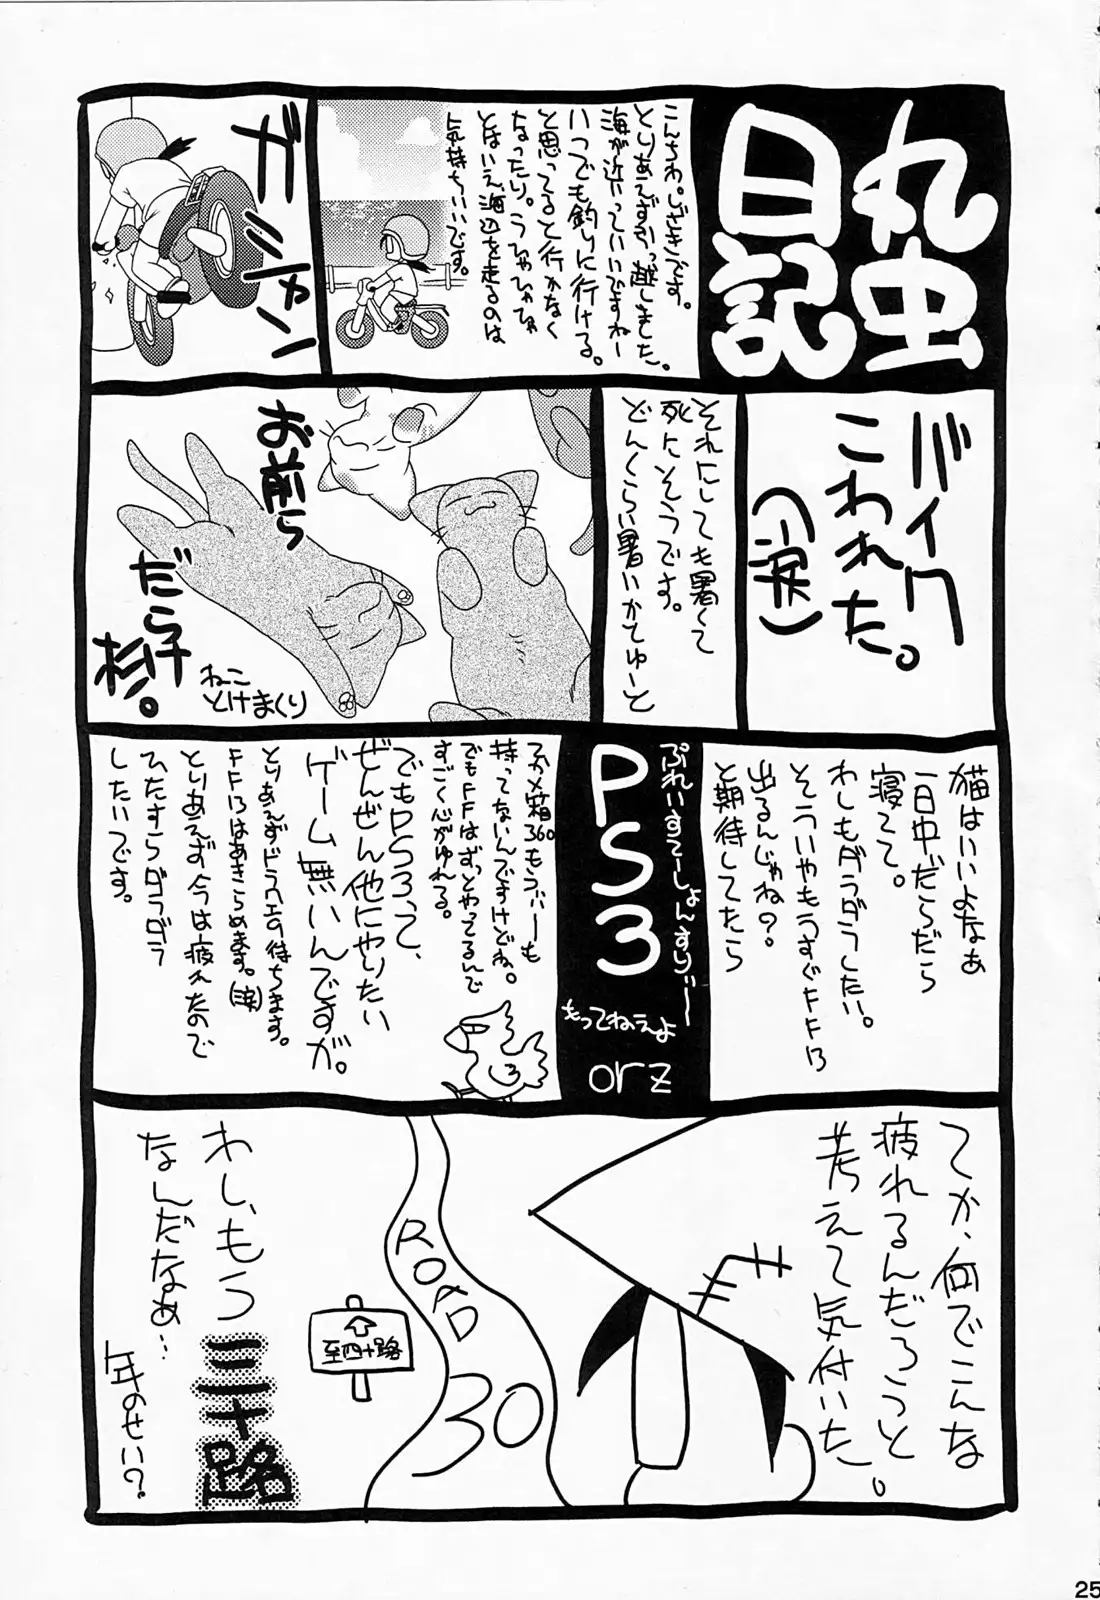 丸虫
日記
こんちわ。じざきです。
とりあえず引っ越しました。
海が近っていいですねー
いつでも釣りに行ける。
と思ってると行かなく
なったり。うひゃひゃひゃ
とはいえ、海辺を走るのは
気持ちいいです。
ガシャン
バイク
こわれた。
(泣)
それにしても暑くて
死にそうです。
どんくらい暑いかてゅーと
お前ら
だら子
杉。
ねこ
とけまくり
猫はいいよなぁ
一日中だらだら
寝てて。
わしもダラダラしたい。
そういやもうすぐFF13
出るんじゃね?
と期待してたら
ぷれいすてーしょんすりぃー
PS3
もってねぇよ
orz
てかメ箱360もうぃーも
持ってないんですけどね。
でもFFはずっとやってるんで
すごく心がゆれる。
でもPS3、って、
ぜんぜん他にやりたい
ゲーム無いんですが。
とりあえずドラクエ9待ちます。
FF13はあきらめます。(涙)
とりあえず今は疲れたので
ひたすらダラダラ
したいです。
てか、何でこんな
疲れるんだろうと
考えて気付いた。
ROAD
30
至四十路
わし、もう
三十路
なんだなぁ…
年のせい?
25